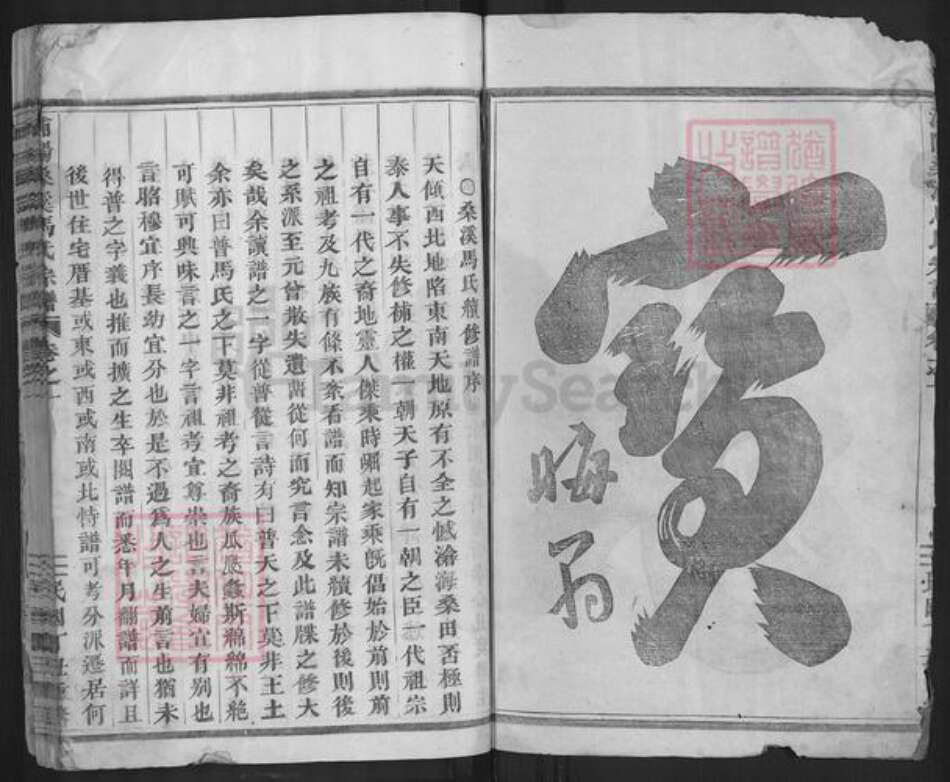 寶
晦翁
桑溪馬氏續修譜序
天傾西北地陷東南天地原有不全之憾滄海桑田否極則
泰人事不失修補之權一朝天子自有一朝之臣一代祖宗
自有一代之裔地靈人傑乘時崛起家乘旣倡始於前則前
之祖考及九族有條不紊看譜而知宗譜未續修於後則後
之系派至元曾散失遺畱從何而究言念及此譜牒之修大
矣哉余讀譜之一字從普從言詩有曰普天之下莫非王土
余亦曰普馬氏之下莫非祖考之裔族瓜瓞螽斯綿綿不絕
可賦可興味言之一字言祖考宜尊崇也言夫婦宜有別也
言昭穆宜序長幼宜分也於是不過爲人之生前言也猶未
得普之字義也推而擴之生卒閱譜而悉年月翻譜而詳且
後世住宅厝基或東或西或南或北恃譜可考分派遷居何
桑溪馬氏宗譜 卷之一
民國丁丑重修
FamilySearch